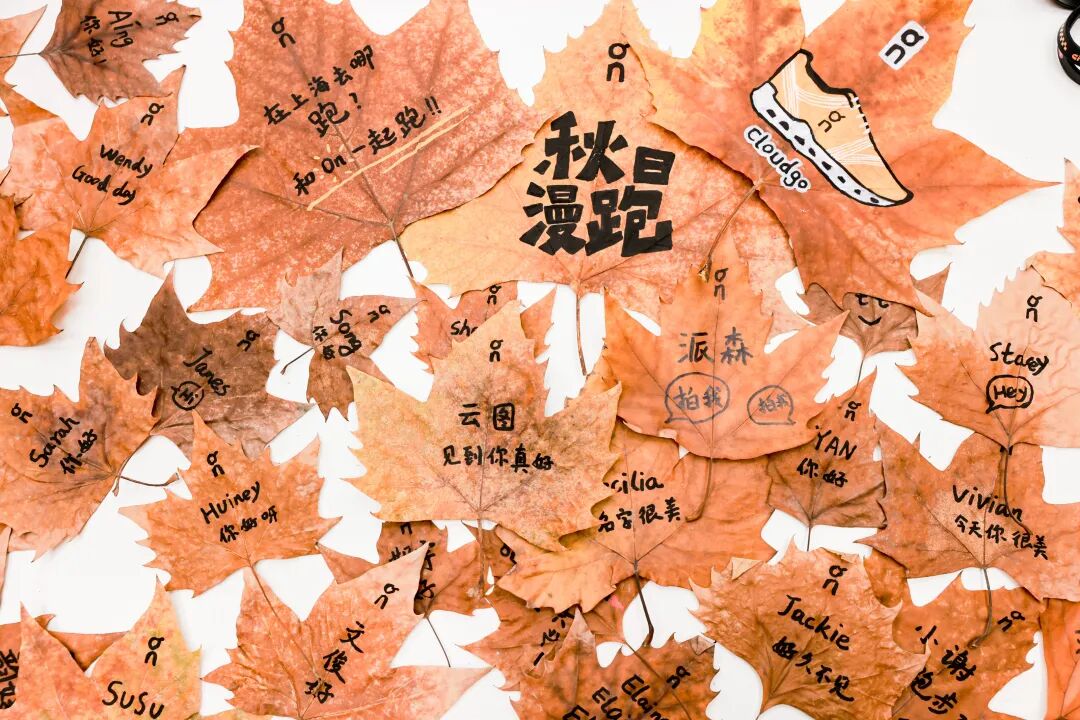 Aing
你好!
on
在上海去哪
跑?
和On一起跑!!
on
秋日
漫跑
on
on
Cloudgo
on
Wendy
Good day
on
James
on
Song
on
on
云图
见到你真好
on
派森
拍我
拍我
on
Stacey
Hey
on
Sarah
你好
on
Huiney
你好呀
on
YAN
你好
cilia
名字很美
Vivian
今天你很美
on
文俊
好
on
Jackie
好久不见
on
小谢
跑步
on
SuSu
on
Elaine